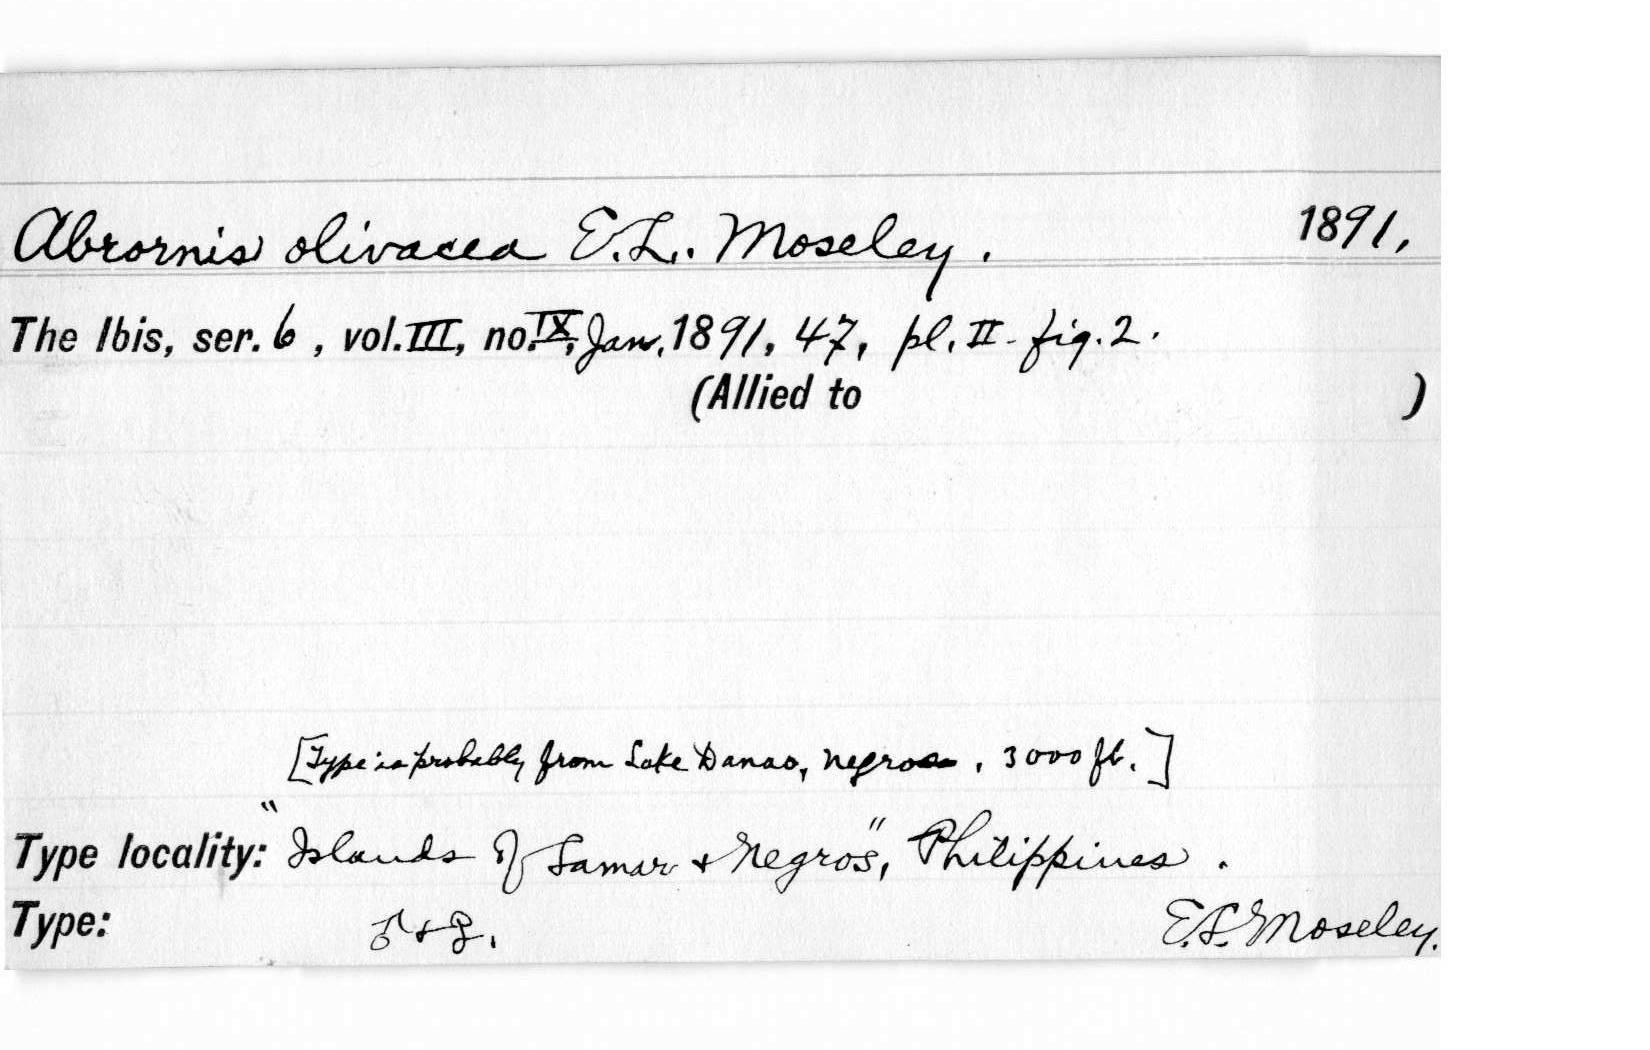 Abrornis olivacea E.L. Moseley. 1891,
The Ibis, ser. 6, vol. III, no. IX, Jan, 1891, 47, pl. II - fig. 2.
(Allied to )
[Type is probably from Lake Danao, Negros, 3000 ft.]
Type locality: "Islands of Samar & Negros", Philippines.
Type: ♂ & ♀. E.L. Moseley.